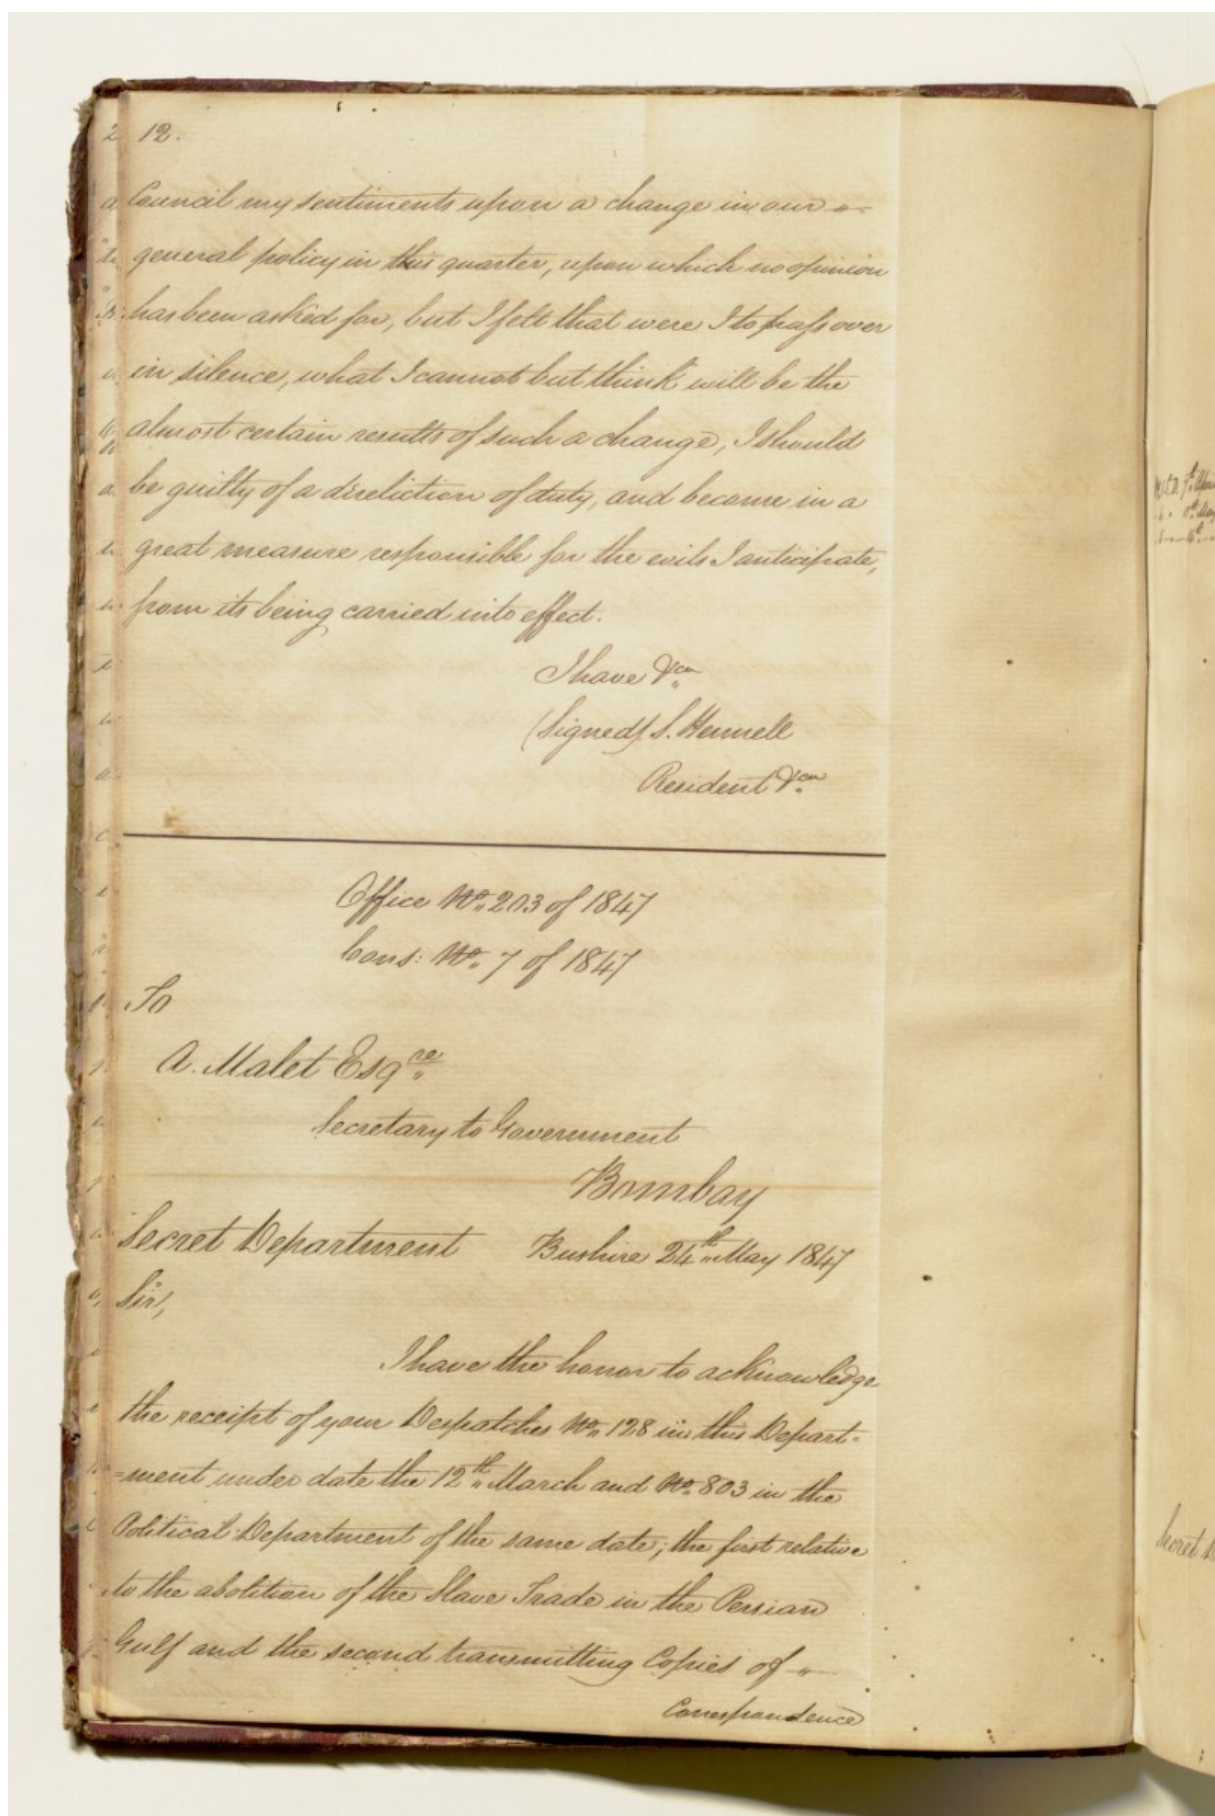 12.
Council my sentiments upon a change in our "
general policy in this quarter, upon which no opinion
has been asked for, but I felt that were I to pass over
in silence, what I cannot but think will be the
almost certain results of such a change, I should
be guilty of a direliction of duty, and become in a
great measure responsible for the evils I anticipate,
from its being carried into effect.
I have &ca
(Signed) S. Hennell
Resident &ca
Office No. 203 of 1847
Cons: No. 7 of 1847
To
A. Malet Esqre
Secretary to Government
Bombay
Secret Department Bushire 24th May 1847
Sir,
I have the honor to acknowledge
the receipt of your Despatches No. 128 in this Depart=
=ment under date the 12th March and No. 803 in the
Political Department of the same date; the first relative
to the abolition of the Slave Trade in the Persian
Gulf and the second transmitting Copies of "
Correspondence
Secret